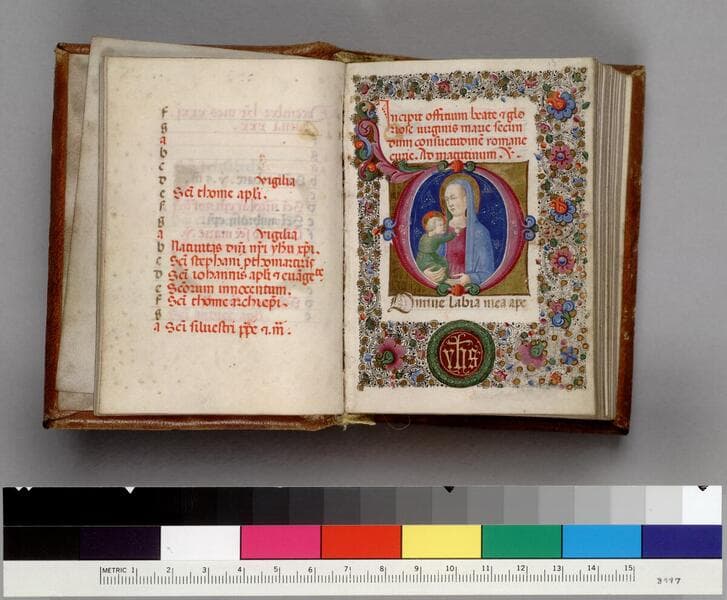 f
g
a
b
c
d Vigilia
e Scī thome apłi.
f
g
a Vigilia
b Natiuitas dnī nr̄i yħu xp̄i.
c Scī stephani pthomartiris
d Scī iohannis apłi & euāge
e Scorum innocentum.
f Scī thome archiepī.
g
a Scī siluestri pp̄e & m̄.
Incipit offitium beate & glo
riose uirginis marie secun
dum consuetudinē romane
curie. Ad matutinum. V.
Domine labia mea ape
yhs
METRIC 1 2 3 4 5 6 7 8 9 10 11 12 13 14 15